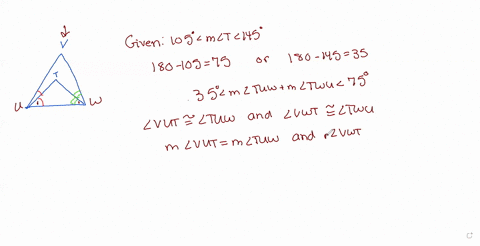 Given: 105° < m∠T < 145°
180 - 105 = 75 or 180 - 145 = 35
35° < m∠TUW + m∠TWU < 75°
∠VUT ≅ ∠TUW and ∠VWT ≅ ∠TWU
m∠VUT = m∠TUW and m∠VWT
V
T
U
W